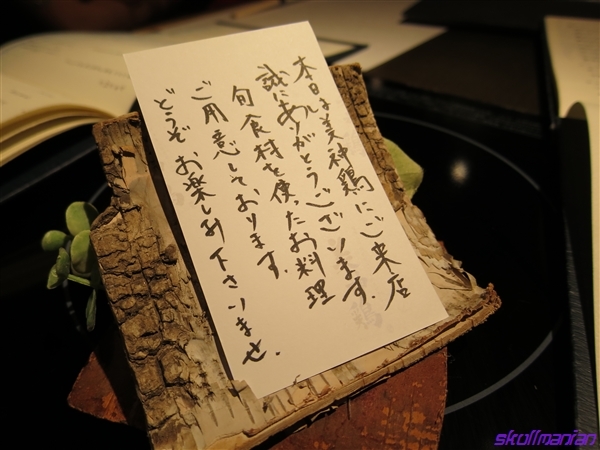 本日は美神鶏にご来店
誠にありがとうございます。
旬食材を使ったお料理
ご用意しております。
どうぞお楽しみ下さいませ。
skullmanian